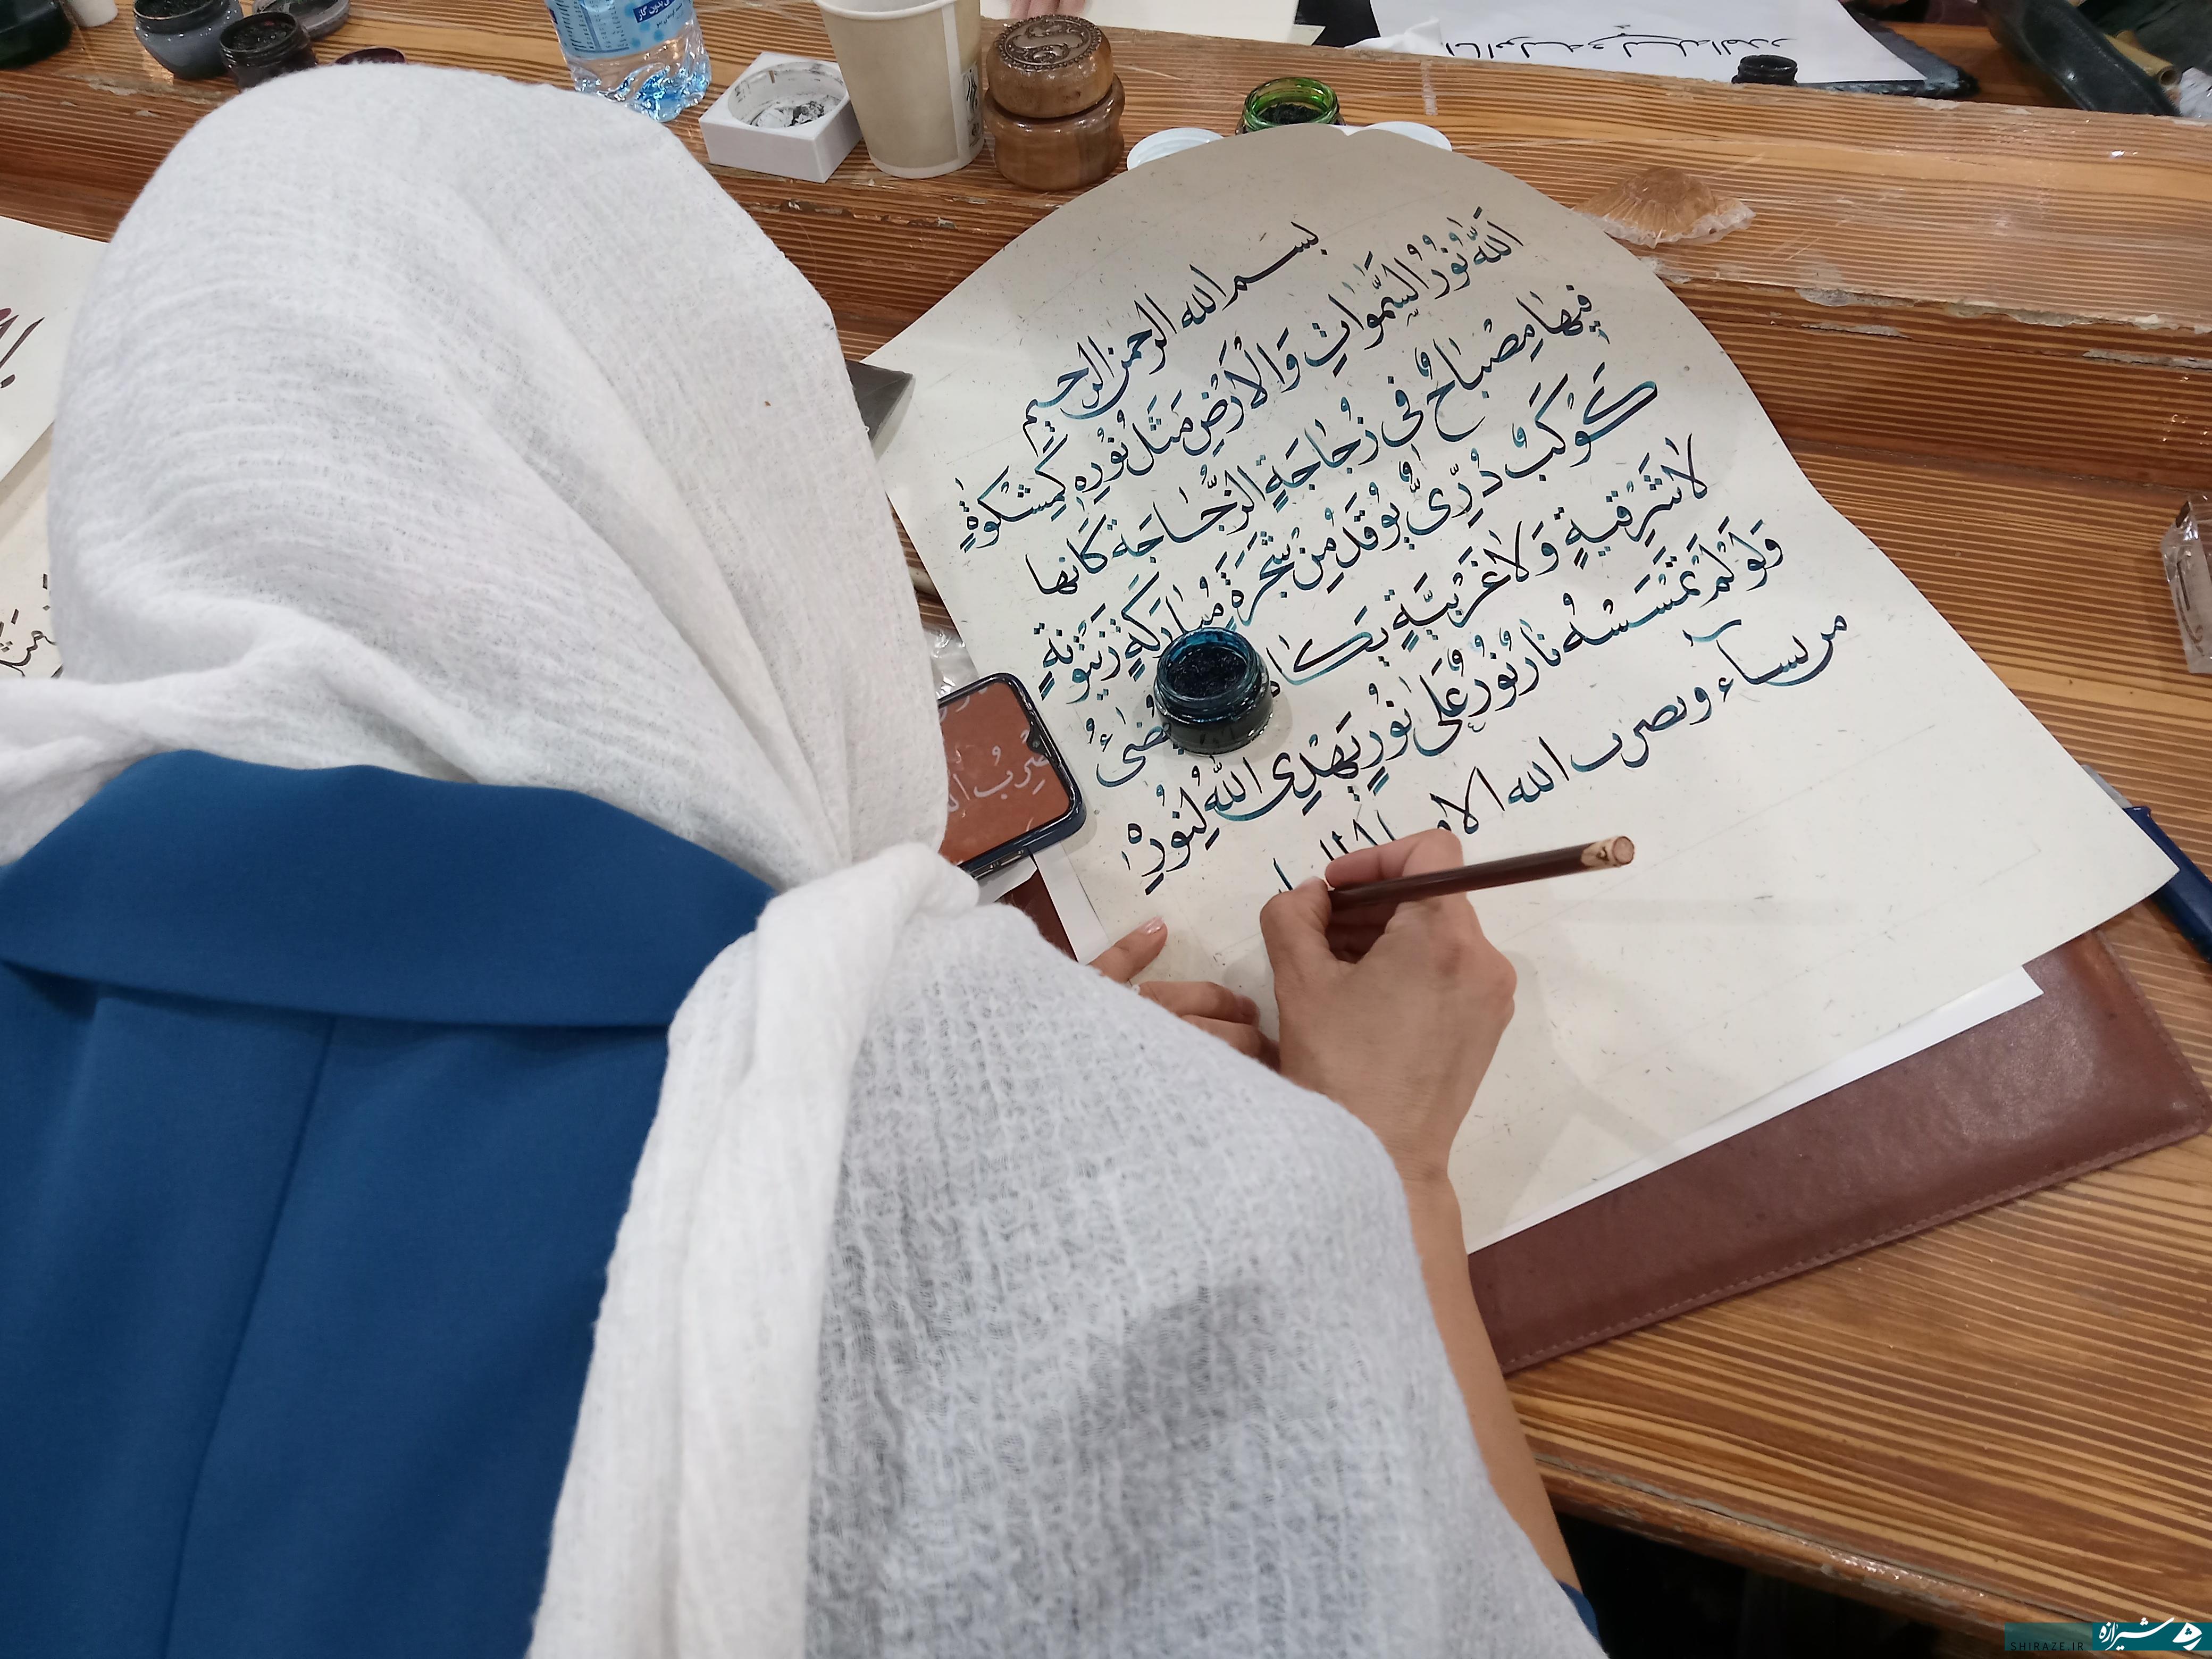 بسم الله الرحمن الرحیم
اَللّٰهُ نُورُ السَّمٰوَاتِ وَالْاَرْضِ مَثَلُ نُورِهِ كَمِشْكٰوةٍ
فیهٰا مِصْبٰاحٌ فی زُجٰاجَةٍ الزُّجٰاجَةُ كَاَنها
كَوْكَبٌ دُرِّیٌّ یُوقَدُ مِنْ شَجَرَةٍ مُبٰارَكَةٍ زَیْتُونَةٍ
لاٰشَرْقِیةٍ وَلاٰغَرْبیَّةٍ یكَاد یُضیٓءُ
وَلَوْلَمْ تَمْسَسْهُ نٰارٌ نُورٌ عَلیٰ نُورٍ یَهْدِی اللّٰهُ لِنُورِهٖ
من یسآء ویصرب الله الا
ضْرِبُ
بدون گاز
شیرازه
SHIRAZE.IR